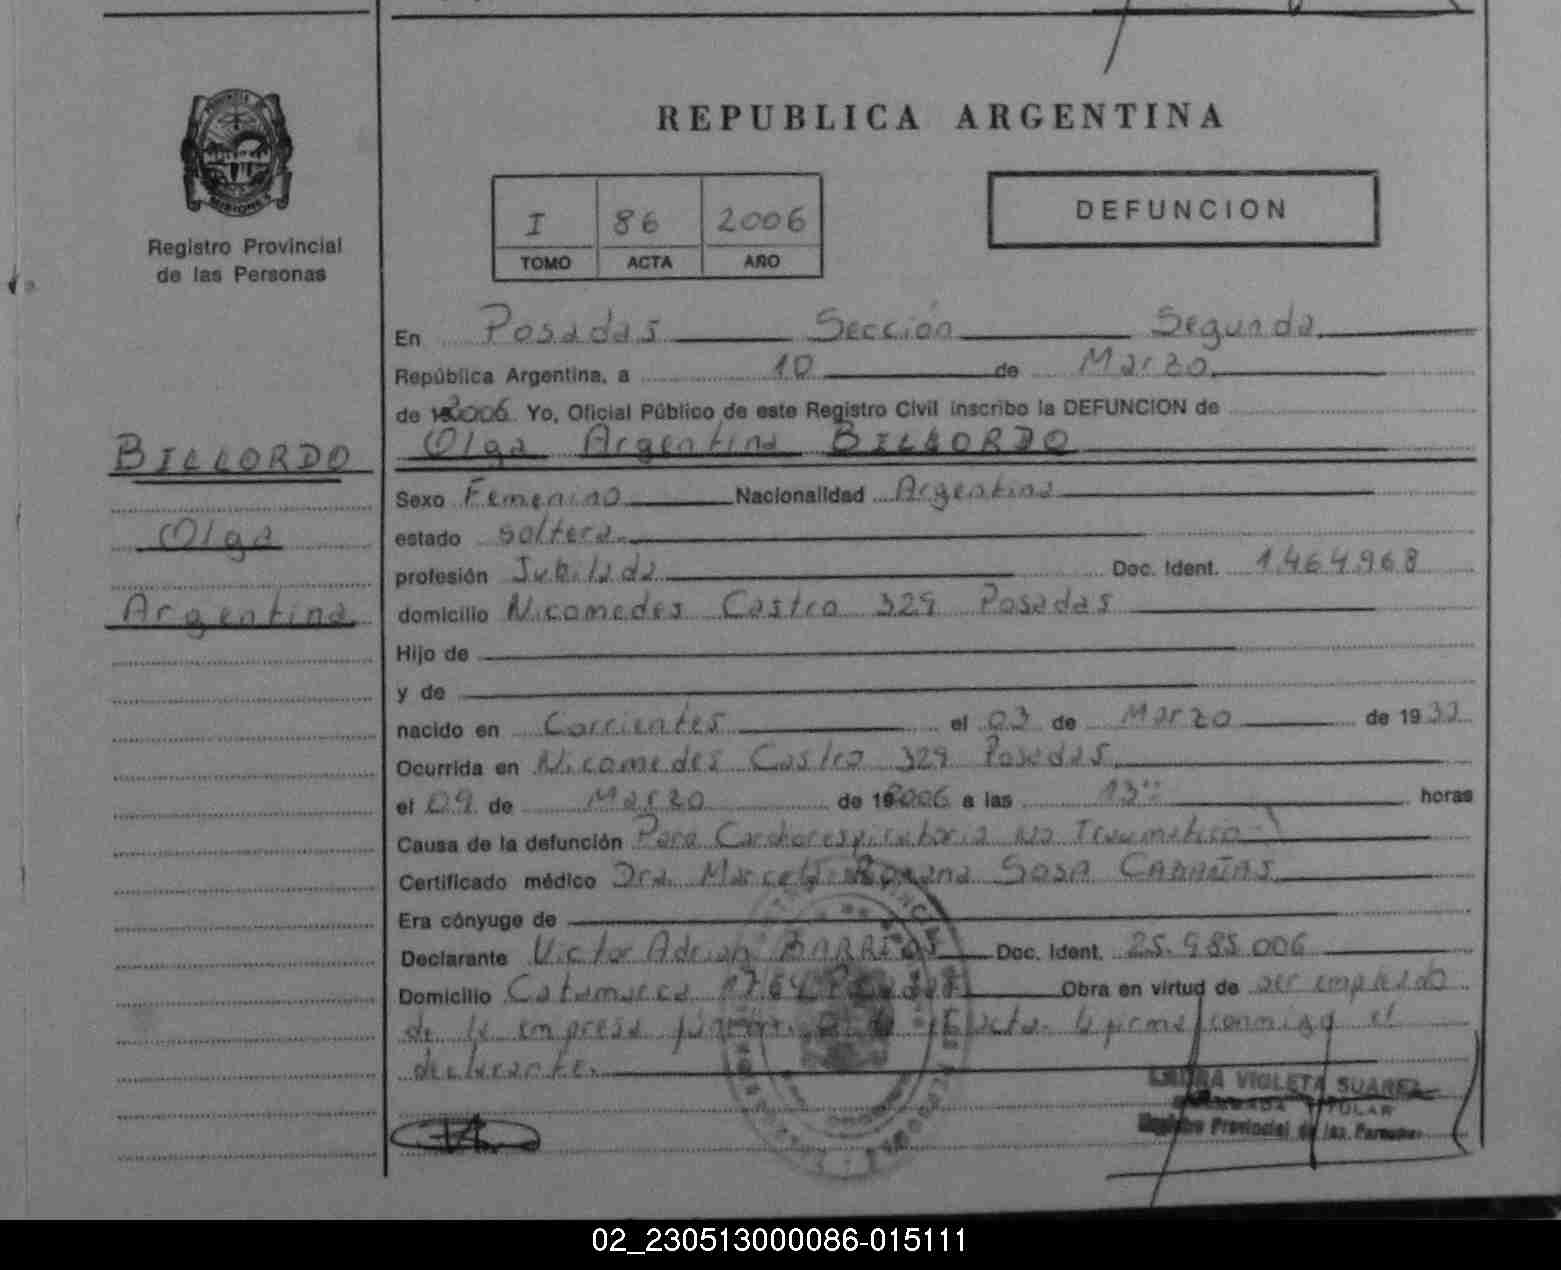 REPUBLICA ARGENTINA
PROVINCIA DE MISIONES
Registro Provincial
de las Personas
I 86 2006
TOMO ACTA AÑO
DEFUNCION
En Posadas Sección Segunda
República Argentina, a 10 de Marzo
de 2006 Yo, Oficial Público de este Registro Civil inscribo la DEFUNCION de
Olga Argentina BILLORDO
BILLORDO
Olga
Argentina
Sexo Femenino Nacionalidad Argentina
estado soltera
profesión Jubilada Doc. Ident. 1.464.968
domicilio Nicomedes Castro 329 Posadas
Hijo de
y de
nacido en Corrientes el 03 de Marzo de 1933
Ocurrida en Nicomedes Castro 329 Posadas
el 09 de Marzo de 2006 a las 13 horas
Causa de la defunción Paro Cardiorespiratorio no Traumatico
Certificado médico Dra. Marcela Roxana SOSA CABAÑAS
Era cónyuge de
Declarante Victor Adrian BARRIOS Doc. Ident. 25.985.006
Domicilio Catamarca 1764 Posadas Obra en virtud de ser empleado
de la empresa funebre. Leida el Acta. la firma conmigo el
declarante.
LAURA VIOLETA SUAREZ
DELEGADA TITULAR
Registro Provincial de las Personas
02_230513000086-015111